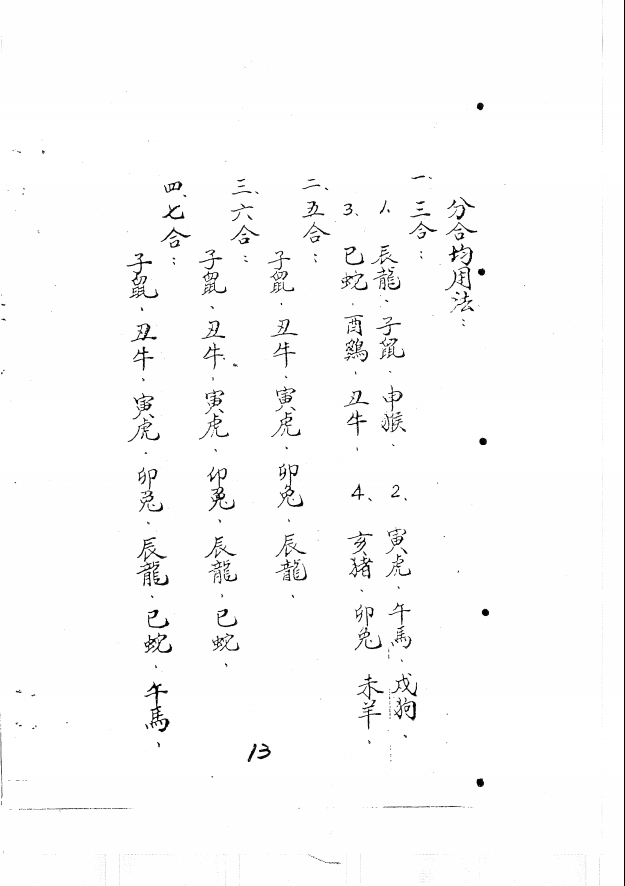 分合均用法：
一、三合：
1、辰龍、子鼠、申猴、 2、寅虎、午馬、戌狗、
3、巳蛇、酉鷄、丑牛、 4、亥豬、卯兔 未羊、
二、五合：
子鼠、丑牛、寅虎、卯兔、辰龍、
三、六合：
子鼠、丑牛、寅虎、卯兔、辰龍、巳蛇、
四、七合：
子鼠、丑牛、寅虎、卯兔、辰龍、巳蛇、午馬、
13